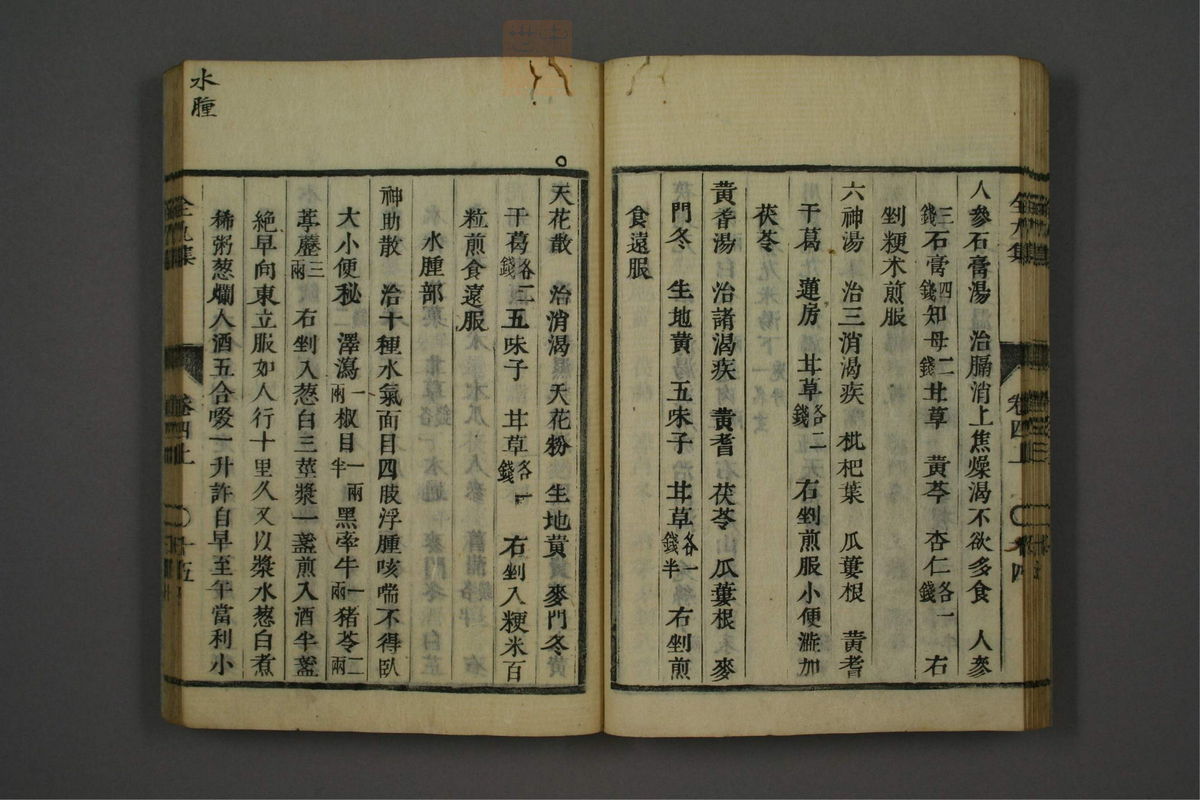 人參石膏湯　治膈消上焦燥渴不欲多食　人參
三錢石膏四錢知母二錢甘草　黃芩　杏仁各一錢　右
剉粳米煎服
六神湯　治三消渴疾　枇杷葉　瓜蔞根　黃耆
干葛　蓮房　甘草各二錢　右剉煎服小便澁加
茯苓
黃耆湯　治諸渴疾　黃耆　茯苓　瓜蔞根　麥
門冬　生地黃　五味子　甘草各一錢半　右剉煎
食遠服
天花散　治消渴　天花粉　生地黃　麥門冬
干葛各二錢五味子　甘草各一錢　右剉入粳米百
粒煎食遠服
水腫部
神助散　治十種水氣面目四肢浮腫咳喘不得臥
大小便秘　澤瀉一兩椒目一兩半黑牽牛一兩猪苓二兩
葶藶三兩　右剉入葱白三莖漿一盞煎入酒半盞
絶早向東立服如人行十里久又以漿水葱白煮
稀粥葱爛入酒五合啜一升許自早至午當利小
水腫
全九集
卷四上
十五
全九集
卷四上
十四